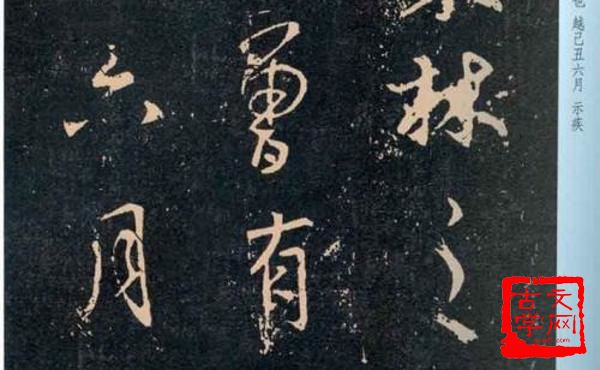 越己丑六月 示疾
林之
曾有
六月
古文
学网